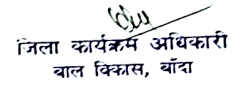 जिला कार्यक्रम अधिकारी
बाल विकास, बाँदा